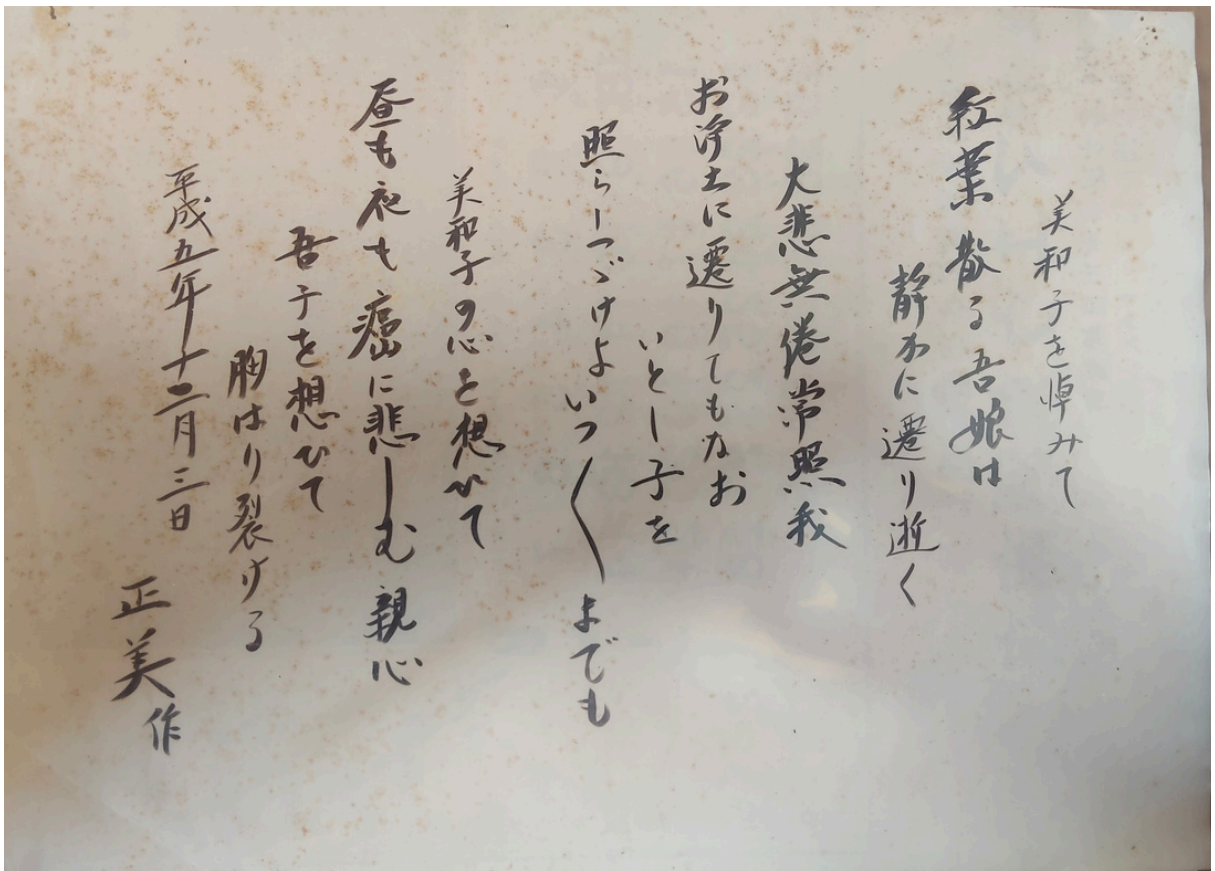 美和子を悼みて
紅葉散る吾娘は
静かに遷り逝く
大悲無倦常照我
お浄土に遷りてもなお
いとし子を
照らしつゞけよいつ〱までも
美和子の心を想いて
昼も夜も癌に悲しむ親心
吾子を想ひて
胸はり裂ける
平成五年十二月三日
正美作